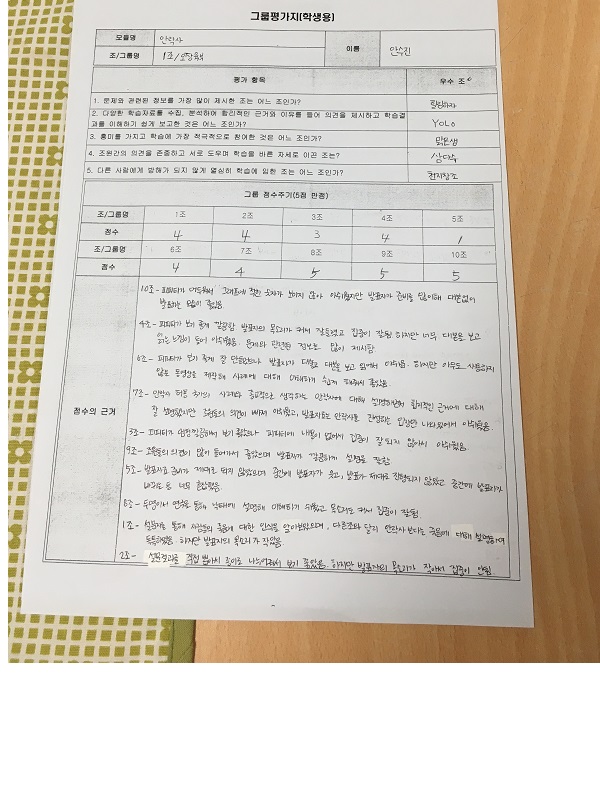 그룹평가지(학생용)
모듈명 안락사 이름 안수진
조/그룹명 1조/오장육부
평가 항목 우수 조
1. 문제와 관련된 정보를 가장 많이 제시한 조는 어느 조인가?
2. 다양한 학습자료를 수집, 분석하여 합리적인 근거와 이유를 들어 의견을 제시하고 학습결 YOLO
과를 이해하기 쉽게 보고한 것은 어느 조인가?
3. 흥미를 가지고 학습에 가장 적극적으로 참여한 것은 어느 조인가? 맑은샘
4. 조원간의 의견을 존중하고 서로 도우며 학습을 바른 자세로 이끈 조는? 삼다수
5. 다른 사람에게 방해가 되지 않게 열심히 학습에 임한 조는 어느 조인가? 천지창조
그룹 점수주기(5점 만점)
조/그룹명 1조 2조 3조 4조 5조
점수 4 4 3 4 1
조/그룹명 6조 7조 8조 9조 10조
점수 4 4 5 5 5
점수의 근거
10조- 피피티가 어두워서 그래프에 적힌 숫자가 보이지 않아 아쉬웠지만 발표자가 준비를 많이해 대본없이
발표하는 모습이 좋았음.
4조- 피피티가 보기 좋게 깔끔함. 발표자의 목소리가 커서 잘들렸고 집중이 잘됨. 하지만 너무 대본을 보고
읽는 느낌이 들어 아쉬웠음. 문제와 관련된 정보도 많이 제시함
6조- 피피티가 보기 좋게 잘 만들었으나 발표자가 대본을 보고 있어서 아쉬움. 하지만 아무도 사용하지
않은 동영상을 제작해 사례에 대해 이해하기 쉽게 해줘서 좋았음.
7조- 안락사 허용 국가의 사례와 종교적으로 생각하는 안락사에 대해 설명하면서 합리적인 근거에 대해
잘 설명했지만 조원들의 의견이 빠져 아쉬웠고, 발표자료는 안락사를 찬성하는 입장만 나와있어서 아쉬웠음.
3조- 피피티가 엄청깔끔해서 보기 좋았으나 피피티에 내용이 없어서 집중이 잘 되지 않아서 아쉬웠음.
9조- 조원들의 의견이 많이 들어가서 좋았으며 발표자가 깔끔하게 설명을 잘함
5조- 발표자료 준비가 제대로 되지 않았으며 중간에 발표자가 웃고, 발표가 제대로 진행되지 않았고 중간에 발표자가
바뀌는 등 너무 혼란했음.
8조- 두명이서 연극을 통해 낙태에 설명해 이해하기 쉬웠고 목소리도 커서 집중이 잘됨.
1조- 설문지를 통해 사람들의 죽음에 대한 인식을 알아보았으며, 다른조와 달리 안락사 보다는 죽음에 대해 설명하여
독특하였음. 하지만 발표자의 목소리가 작았음.
2조- 설문결과를 직접 뽑아서 종이로 나눠어줘서 보기 좋았음. 하지만 발표자의 목소리가 작아서 집중이 안됨.